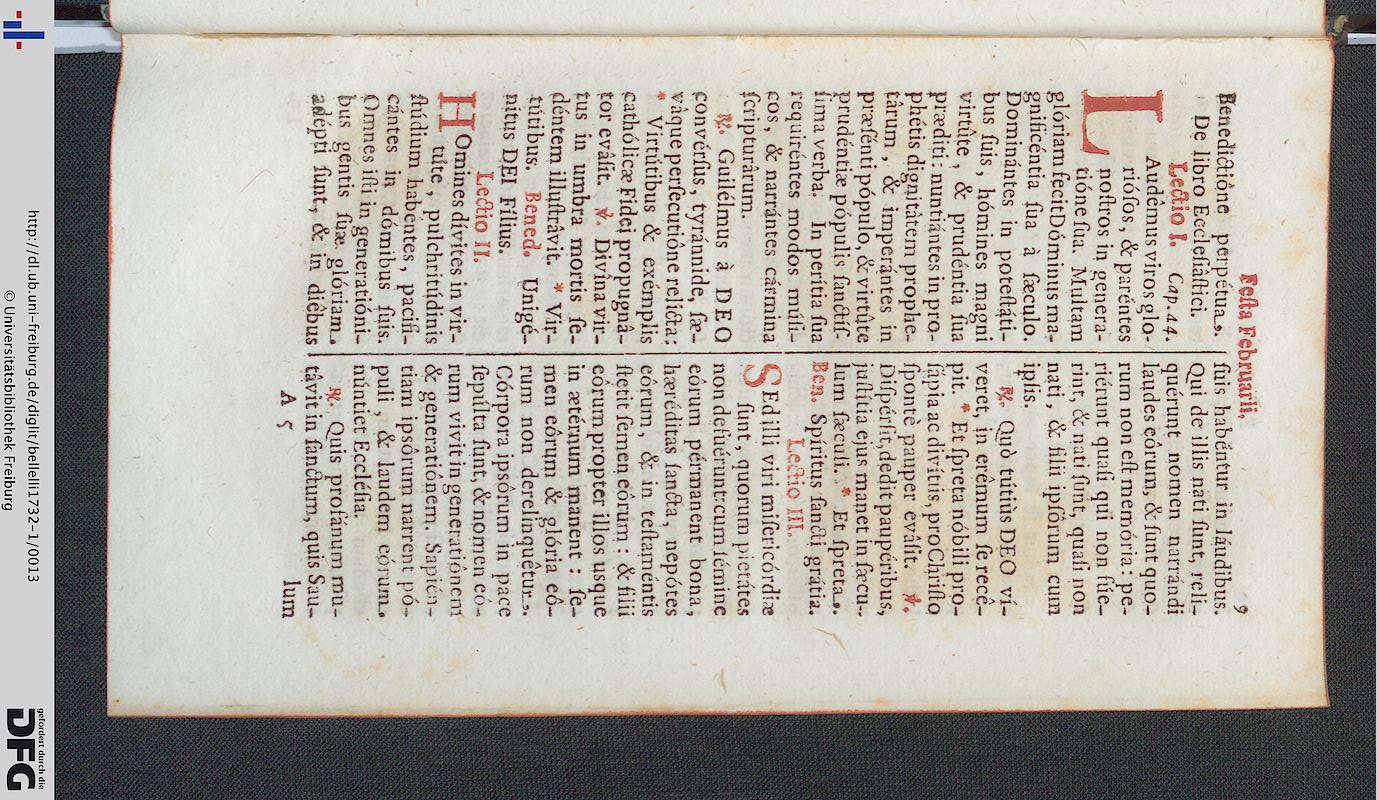 Festa Februarii. 9
Benedictiône perpétua.
De libro Ecclesiástici.
Lectio I. Cap. 44.
LAudêmus viros glo-
riósos, & paréntes
nostros in genera-
tióne sua. Multam
glóriam fecit Dóminus ma-
gnificéntia sua à sæculo.
Dominántes in potestáti-
bus suis, hómines magni
virtûte, & prudéntia sua
præditi: nuntiántes in pro-
phétis dignitàtem prophe-
tàrum, & imperántes in
præsénti pópulo, & virtûte
prudéntiæ pópulis sanctíf-
sima verba. In perítia sua
requiréntes modos músi-
cos, & narrántes cármina
scripturârum.
℟. Guilélmus à DEO
convérsus, tyránnide, sæ-
vàque persecutiône relícta:
* Virtútibus & exémplis
cathólicæ Fidei propugnâ-
tor evâsit. ℣. Divína vir-
tus in umbra mortis se-
déntem illustrâvit. * Vir-
tútibus. Bened. Unigé-
nitus DEI Fílius.
Lectio II.
HOmines dívites in vir-
tûte, pulchritúdinis
stúdium habéntes, pacifi-
cántes in dómibus suis.
Omnes isti in generatióni-
bus gentis suæ glóriam
adépti sunt, & in diêbus
suis habéntur in láudibus.
Qui de illis nati sunt, reli-
quérunt nomen narrándi
laudes eôrum, & sunt quo-
rum non est memória: pe-
riérunt quasi qui non fúe-
rint, & nati sunt, quasi non
nati, & fílii ipsórum cum
ipsis.
℟. Quò tútiùs DEO ví-
veret, in erêmum se recê-
pit. * Et spreta nóbili pro-
sápia ac divítiis, pro Christo
spontè pauper evâsit. ℣.
Dispérsit, dedit paupéribus,
justítia ejus manet in sæcu-
lum sæculi. * Et spreta.
Ben. Spíritus sancti grátia.
Lectio III.
SEd illi viri misericórdiæ
sunt, quorum pietátes
non defuérunt: cum sémine
eôrum pérmanent bona,
hæréditas sancta, nepótes
eôrum, & in testaméntis
stetit semen eôrum: & fílii
eôrum propter illos usque
in ætérnum manent: se-
men eórum & glória eô-
rum non derelinquêtur.
Córpora ipsôrum in pace
sepúlta sunt, & nomen eó-
rum vivit in generatiónem
& generatiónem. Sapién-
tiam ipsôrum narrent pó-
puli, & laudem eórum
núntiet Ecclésia.
℟. Quis profánum mu-
tâvit in sanctum, quis Sau-
A 5 lum
http://dl.ub.uni-freiburg.de/diglit/bellelli1732-1/0013
© Universitätsbibliothek Freiburg
gefördert durch die
DFG